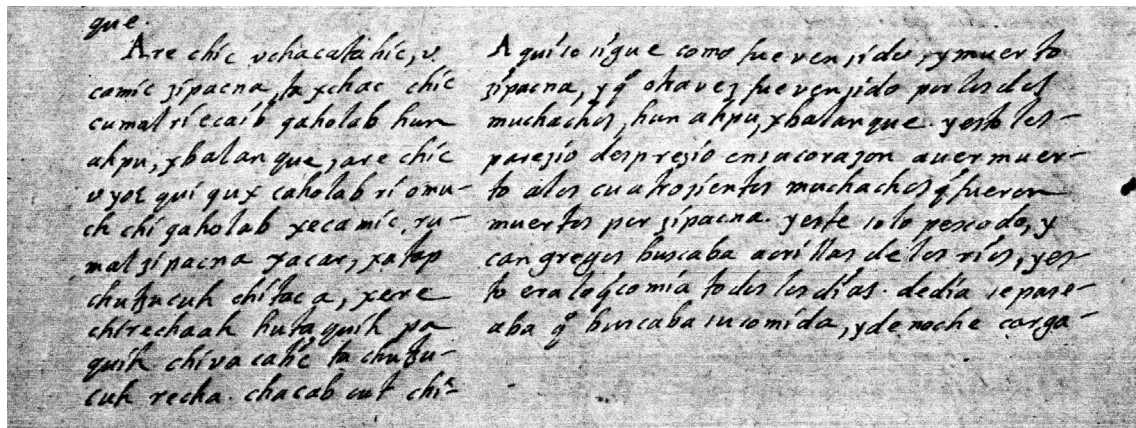 que.
Are chic vchacatahic, v
camic zipacna, ta xchac chic
cumal ri ecaib qaholab hun
ahpu, xbalanque, are chic
v yoɛ qui qux caholab ri omu-
ch chi qaholab xecamic, ru-
mal zipacna xacar, xatap
chutzucuh chi taca, xere
chirechaah hutaquih pa
quih chivacahic ta chutzu-
cuh recha. chacab cut chi-
Aqui se sigue como fue vensido, y muerto
zipacna, y qͦ otravez fue vensido por los dos
muchachos, hun ahpu, xbalanque. y esto les-
paresio despresio en su corazon aver muer-
to alos cuatrosientos muchachos q̃ fueron
muertos por zipacna. y este solo pescado, y
cangrejos buscaba aorillas de los rios, y es-
to era lo q̃ comia todos los dias. de dia se pase-
aba qͦ buscaba su comida, y de noche carga-